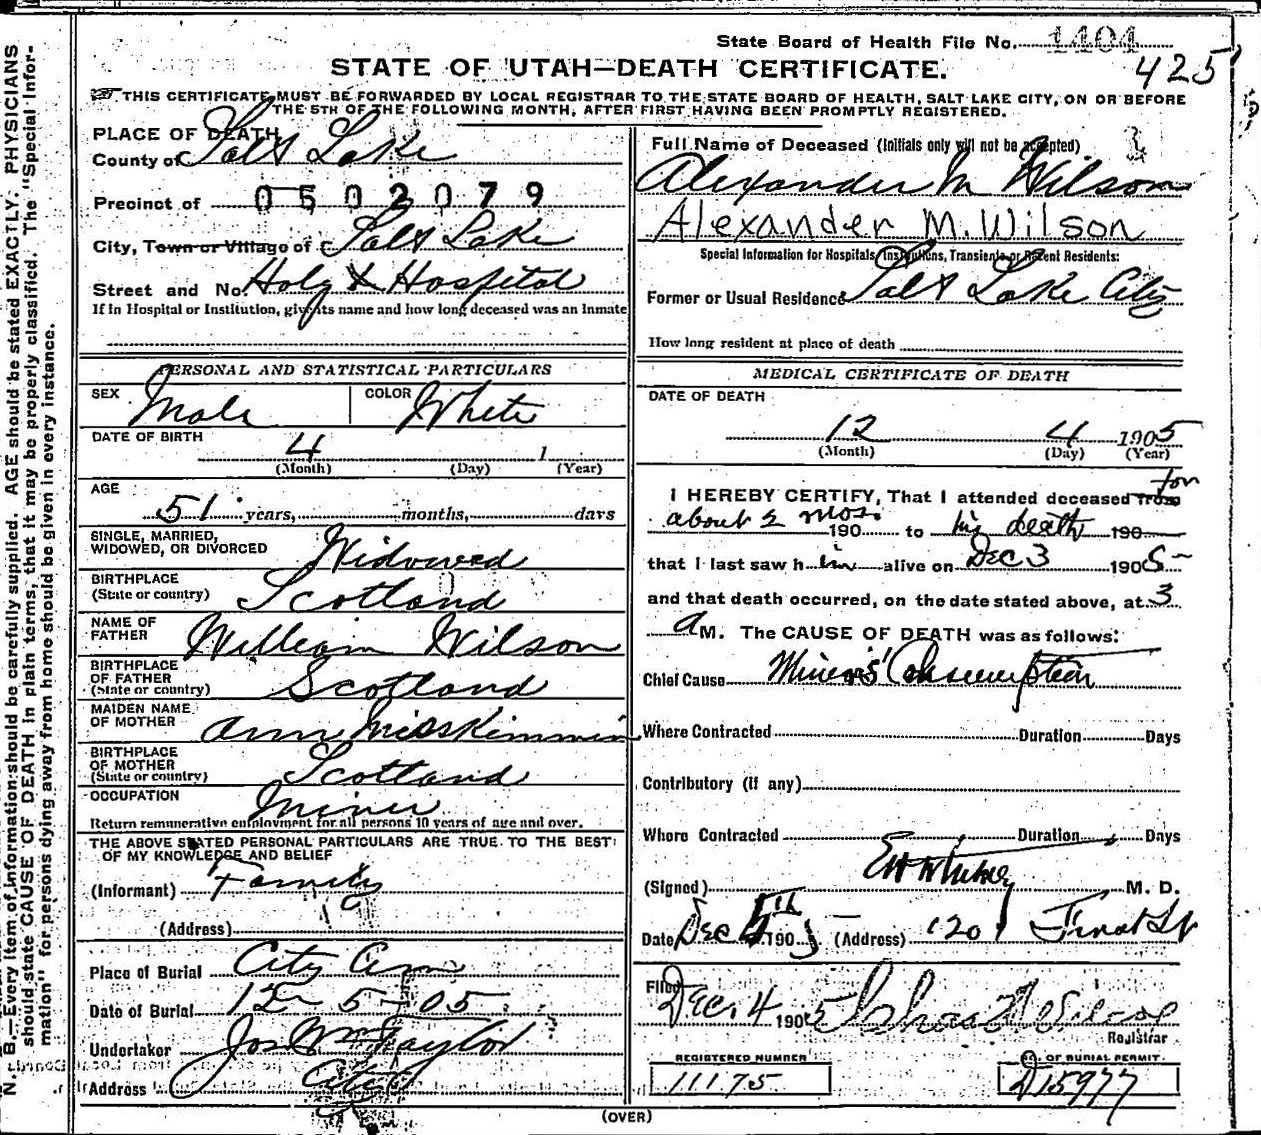 State Board of Health File No. 1404
425
STATE OF UTAH—DEATH CERTIFICATE.
THIS CERTIFICATE MUST BE FORWARDED BY LOCAL REGISTRAR TO THE STATE BOARD OF HEALTH, SALT LAKE CITY, ON OR BEFORE
THE 5TH OF THE FOLLOWING MONTH, AFTER FIRST HAVING BEEN PROMPTLY REGISTERED.
N. B.—Every item of information should be carefully supplied. AGE should be stated EXACTLY. PHYSICIANS
should state CAUSE OF DEATH in plain terms, that it may be properly classified. The "Special Infor-
mation" for persons dying away from home should be given in every instance.
PLACE OF DEATH
County of Salt Lake
Precinct of 0502079
City, Town or Village of Salt Lake
Street and No. Holy X Hospital
If in Hospital or Institution, give its name and how long deceased was an Inmate
PERSONAL AND STATISTICAL PARTICULARS
SEX Male COLOR White
DATE OF BIRTH 4 1
(Month) (Day) (Year)
AGE
51 years, months, days
SINGLE, MARRIED,
WIDOWED, OR DIVORCED Widowed
BIRTHPLACE
(State or country) Scotland
NAME OF
FATHER William Wilson
BIRTHPLACE
OF FATHER
(State or country) Scotland
MAIDEN NAME
OF MOTHER Ann Misskimmin
BIRTHPLACE
OF MOTHER
(State or country) Scotland
OCCUPATION Miner
Return remunerative employment for all persons 10 years of age and over.
THE ABOVE STATED PERSONAL PARTICULARS ARE TRUE TO THE BEST
OF MY KNOWLEDGE AND BELIEF
(Informant) Family
(Address)
Place of Burial City Cem
Date of Burial 12-5-05
Undertaker Jos Wm Taylor
Address City
Full Name of Deceased (Initials only will not be accepted)
Alexander M Wilson
Alexander M. Wilson
Special Information for Hospitals, Institutions, Transients or Recent Residents:
Former or Usual Residence Salt Lake City
How long resident at place of death
MEDICAL CERTIFICATE OF DEATH
DATE OF DEATH
12 4 1905
(Month) (Day) (Year)
I HEREBY CERTIFY, That I attended deceased from for
about 2 mos. 190 to his death 190
that I last saw him alive on Dec 3 1905
and that death occurred, on the date stated above, at 3
a M. The CAUSE OF DEATH was as follows:
Chief Cause Miners' Consumption
Where Contracted Duration Days
Contributory (if any)
Where Contracted Duration Days
(Signed) M. D.
Date Dec 190 (Address)
Filed Dec. 4 1905
Registrar
REGISTERED NUMBER
11175
NO. OF BURIAL PERMIT
D15977
(OVER)